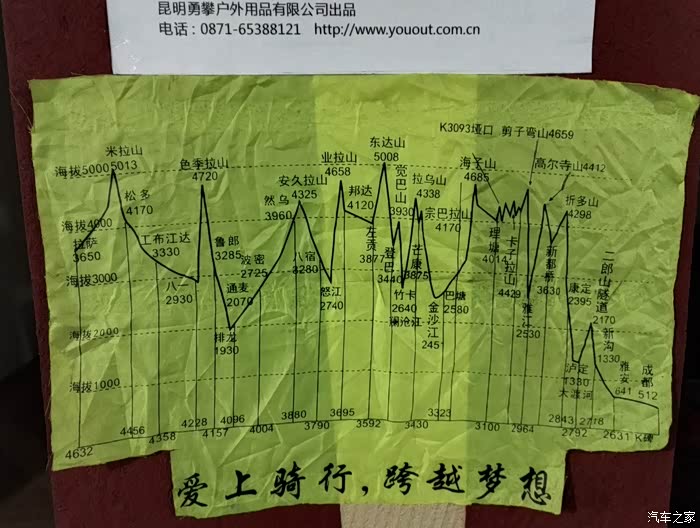 昆明勇攀户外用品有限公司出品
电话：0871-65388121 http://www.youout.com.cn/
K3093垭口 剪子弯山4659
米拉山
5013
海拔5000
色季拉山
4720
业拉山
4658
东达山
5008
海子山
4685
高尔寺山4412
松多
4170
安久拉山
4325
然乌
3960
邦达
4120
觉巴山
3930
拉乌山
4338
宗巴拉山
4170
折多山
4298
海拔4000
拉萨
3650
工布江达
3330
鲁郎
3285
波密
2725
八宿
3280
左贡
3877
登巴
3440
芒康
3875
理塘
4014
卡子拉山
4429
新都桥
3630
康定
2395
二郎山隧道
2170
海拔3000
八一
2930
通麦
2070
怒江
2740
竹卡
2640
澜沧江
金沙江
245
巴塘
2580
雅江
2530
新沟
1330
海拔2000
排龙
1930
泸定
1330
大渡河
雅安
641
成都
512
海拔1000
4632
4456
4358
4228
4157
4096
4004
3880
3790
3695
3592
3430
3323
3100
2964
2843
2792
2718
2631
K碑
爱上骑行，跨越梦想
汽车之家